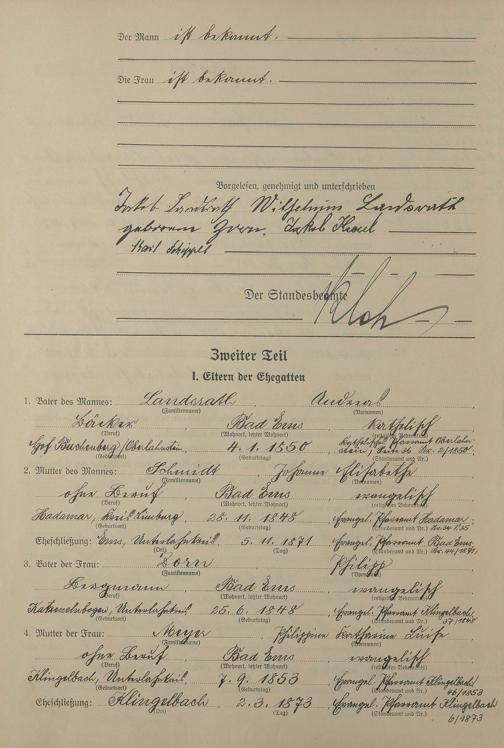 Der Mann ist bekannt.
Die Frau ist bekannt.
Vorgelesen, genehmigt und unterschrieben
Jakob Landsrath Wilhelmine Landsrath
geborene Jakob
Karl Schippel
Der Standesbeamte
Zweiter Teil
I. Eltern der Ehegatten
1. Vater des Mannes: Landsrath Andreas
(Familienname) (Vornamen)
Bäcker Bad Ems katholisch
(Beruf) (Wohnort, letzter Wohnort) (religiöses Bekenntnis)
Hof Oberlahnstein 4. 1. 1850 Katholisches Pfarramt Oberlahn-
(Geburtsort) (Geburtstag) stein, Nr. 2/1850.
(Standesamt und Nr.)
2. Mutter des Mannes: Schmidt Johanne Elisabethe
(Familienname) (Vornamen)
ohne Beruf Bad Ems evangelisch
(Beruf) (Wohnort, letzter Wohnort) (religiöses Bekenntnis)
Hadamar, Kreis Limburg 28. 11. 1848 Evangel. Pfarramt Hadamar
(Geburtsort) (Geburtstag) (Standesamt und Nr.)
Eheschließung: Ems, Unterlahnkreis 5. 11. 1871 Evangel. Pfarramt Bad Ems
(Ort) (Tag) (Standesamt und Nr.) Nr. 44/1871.
3. Vater der Frau: Dorn Philipp
(Familienname) (Vornamen)
Bergmann Bad Ems evangelisch
(Beruf) (Wohnort, letzter Wohnort) (religiöses Bekenntnis)
Katzenelnbogen, Unterlahnkreis 25. 6. 1848 Evangel. Pfarramt Klingelbach
(Geburtsort) (Geburtstag) (Standesamt und Nr.) 37/1848
4. Mutter der Frau: Meyer Philippine Katharine Luise
(Familienname) (Vornamen)
ohne Beruf Bad Ems evangelisch
(Beruf) (Wohnort, letzter Wohnort) (religiöses Bekenntnis)
Klingelbach, Unterlahnkreis 7. 9. 1853 Evangel. Pfarramt Klingelbach
(Geburtsort) (Geburtstag) (Standesamt und Nr.) 46/1853
Eheschließung: Klingelbach 2. 3. 1873 Evangel. Pfarramt Klingelbach
(Ort) (Tag) (Standesamt und Nr.) 6/1873